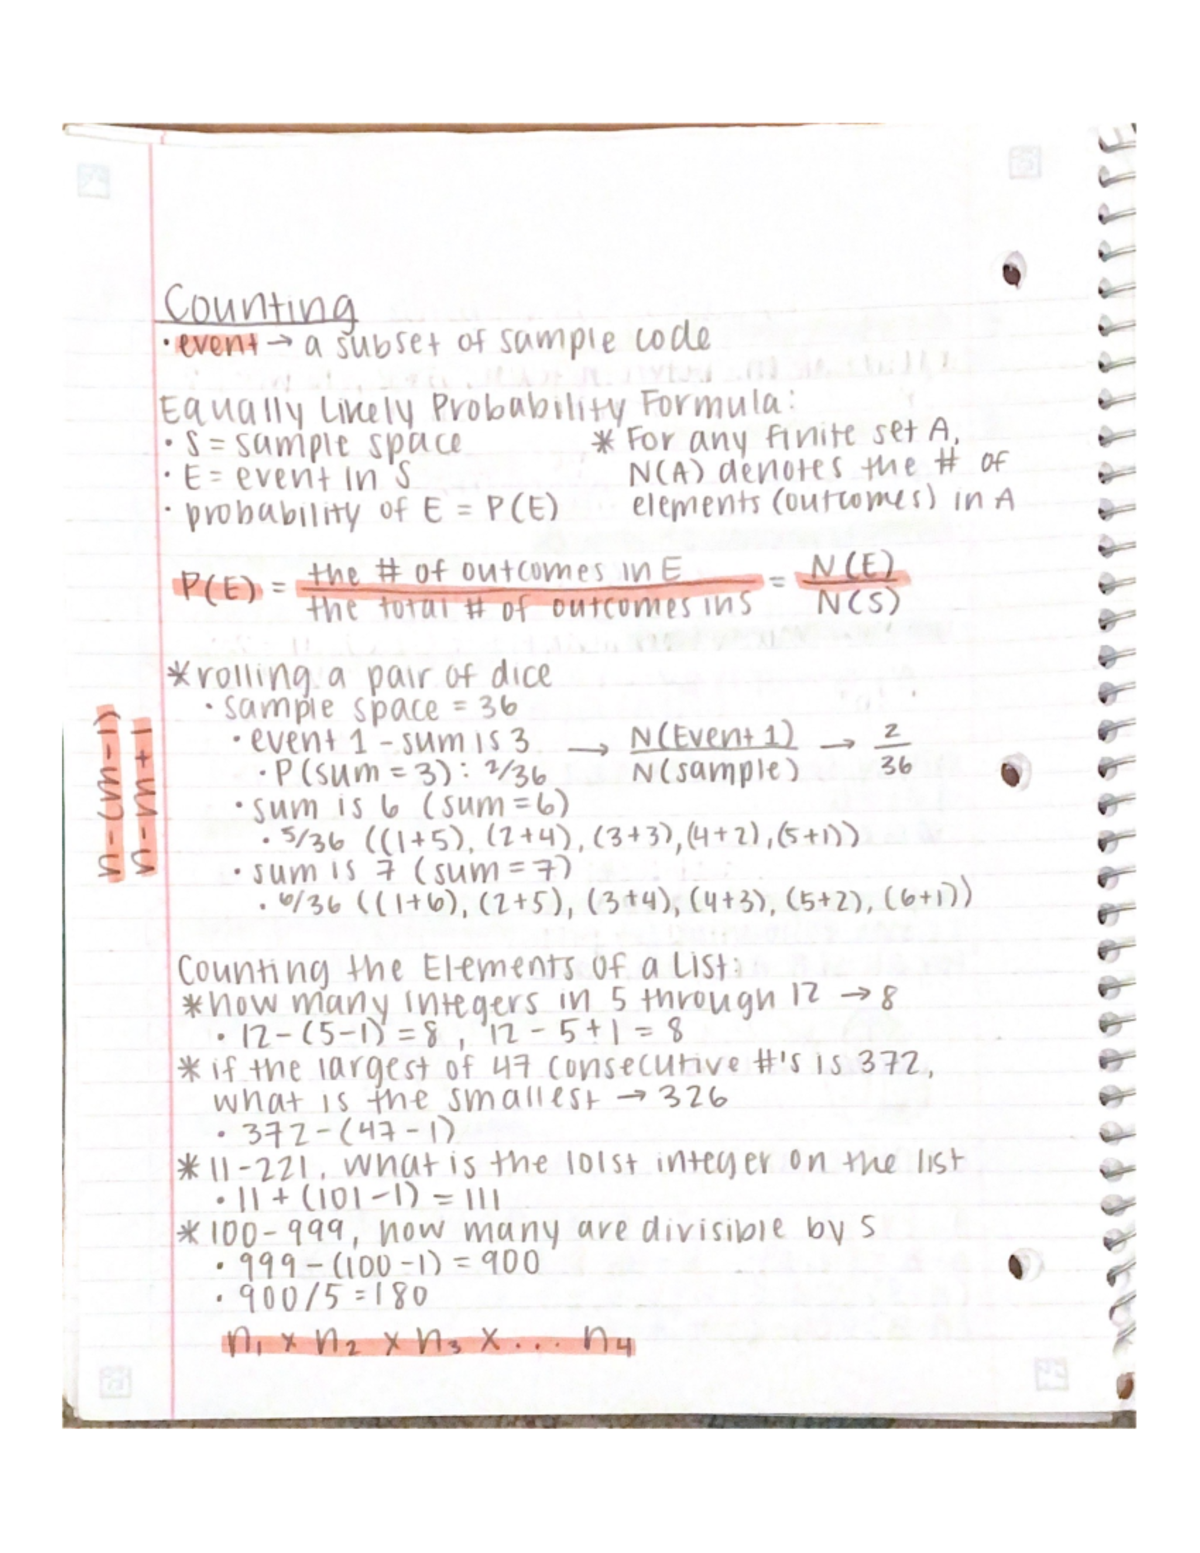 Counting
• event → a subset of sample code
Equally Likely Probability Formula:
• S = sample space
• E = event in S
• probability of E = P(E)
* For any finite set A,
N(A) denotes the # of
elements (outcomes) in A
P(E) = the # of outcomes in E / the total # of outcomes in S = N(E) / N(S)
* rolling a pair of dice
• sample space = 36
• event 1 - sum is 3 → N(Event 1) / N(sample) → 2 / 36
• P(sum = 3): 2/36
• sum is 6 (sum = 6)
• 5/36 ((1+5), (2+4), (3+3), (4+2), (5+1))
• sum is 7 (sum = 7)
• 6/36 ((1+6), (2+5), (3+4), (4+3), (5+2), (6+1))
n-(m-1)
n-m+1
Counting the Elements of a List:
* how many integers in 5 through 12 → 8
• 12-(5-1) = 8, 12 - 5 + 1 = 8
* if the largest of 47 consecutive #'s is 372,
what is the smallest → 326
• 372-(47-1)
* 11-221, what is the 101st integer on the list
• 11 + (101-1) = 111
* 100-999, how many are divisible by 5
• 999-(100-1) = 900
• 900/5 = 180
n1 x n2 x n3 x ... n4